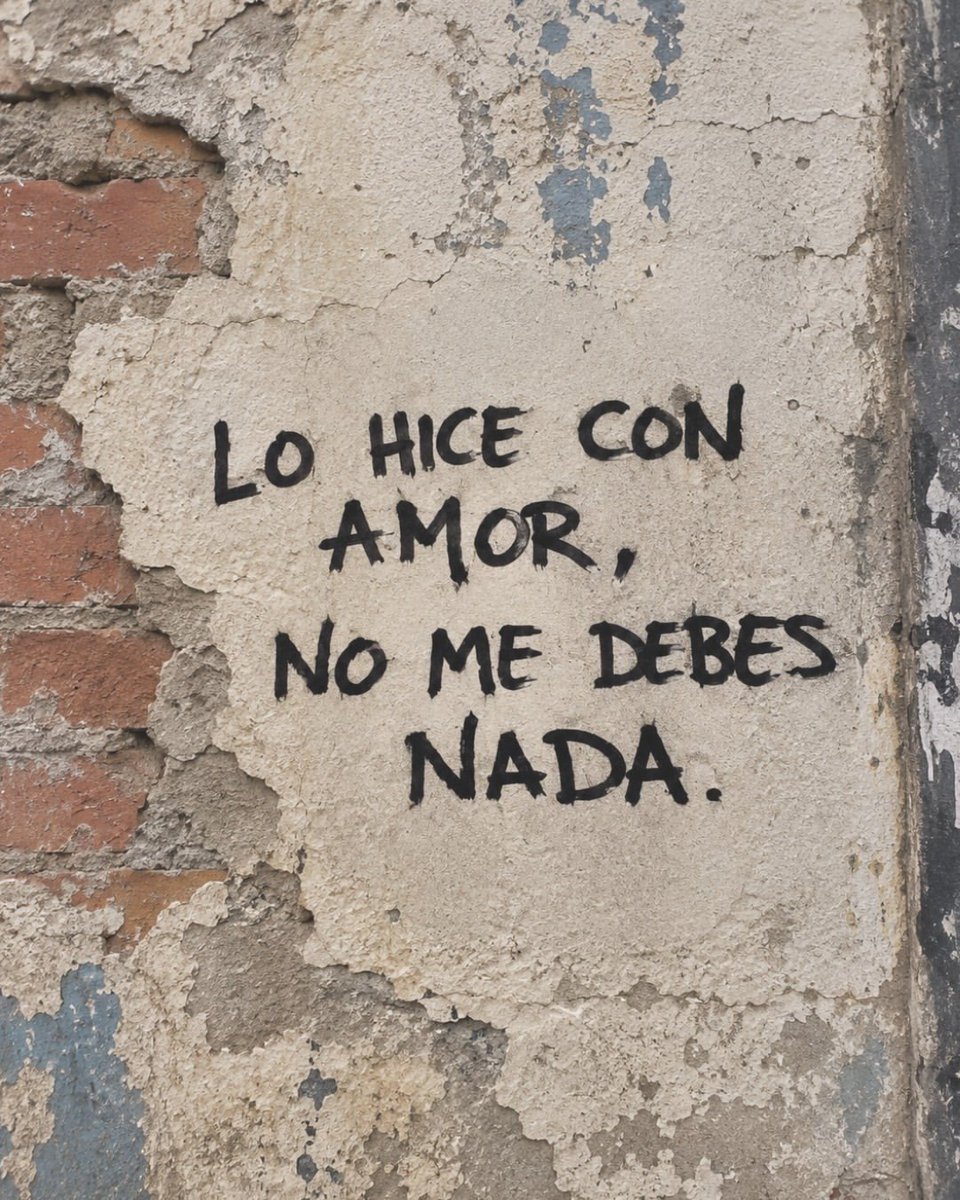 LO HICE CON
AMOR,
NO ME DEBES
NADA.